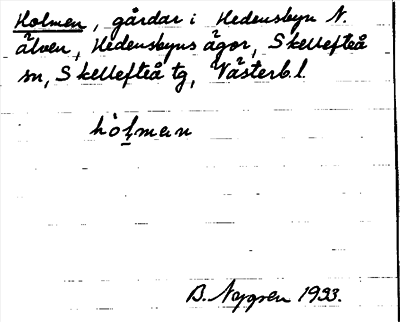 Holmen, gårdar i Hedensbyn N.
älven, Hedensbyns ägor, Skellefteå
sn, Skellefteå tg, Västerb.l.
hòl̠man
B. Nygren 1933.